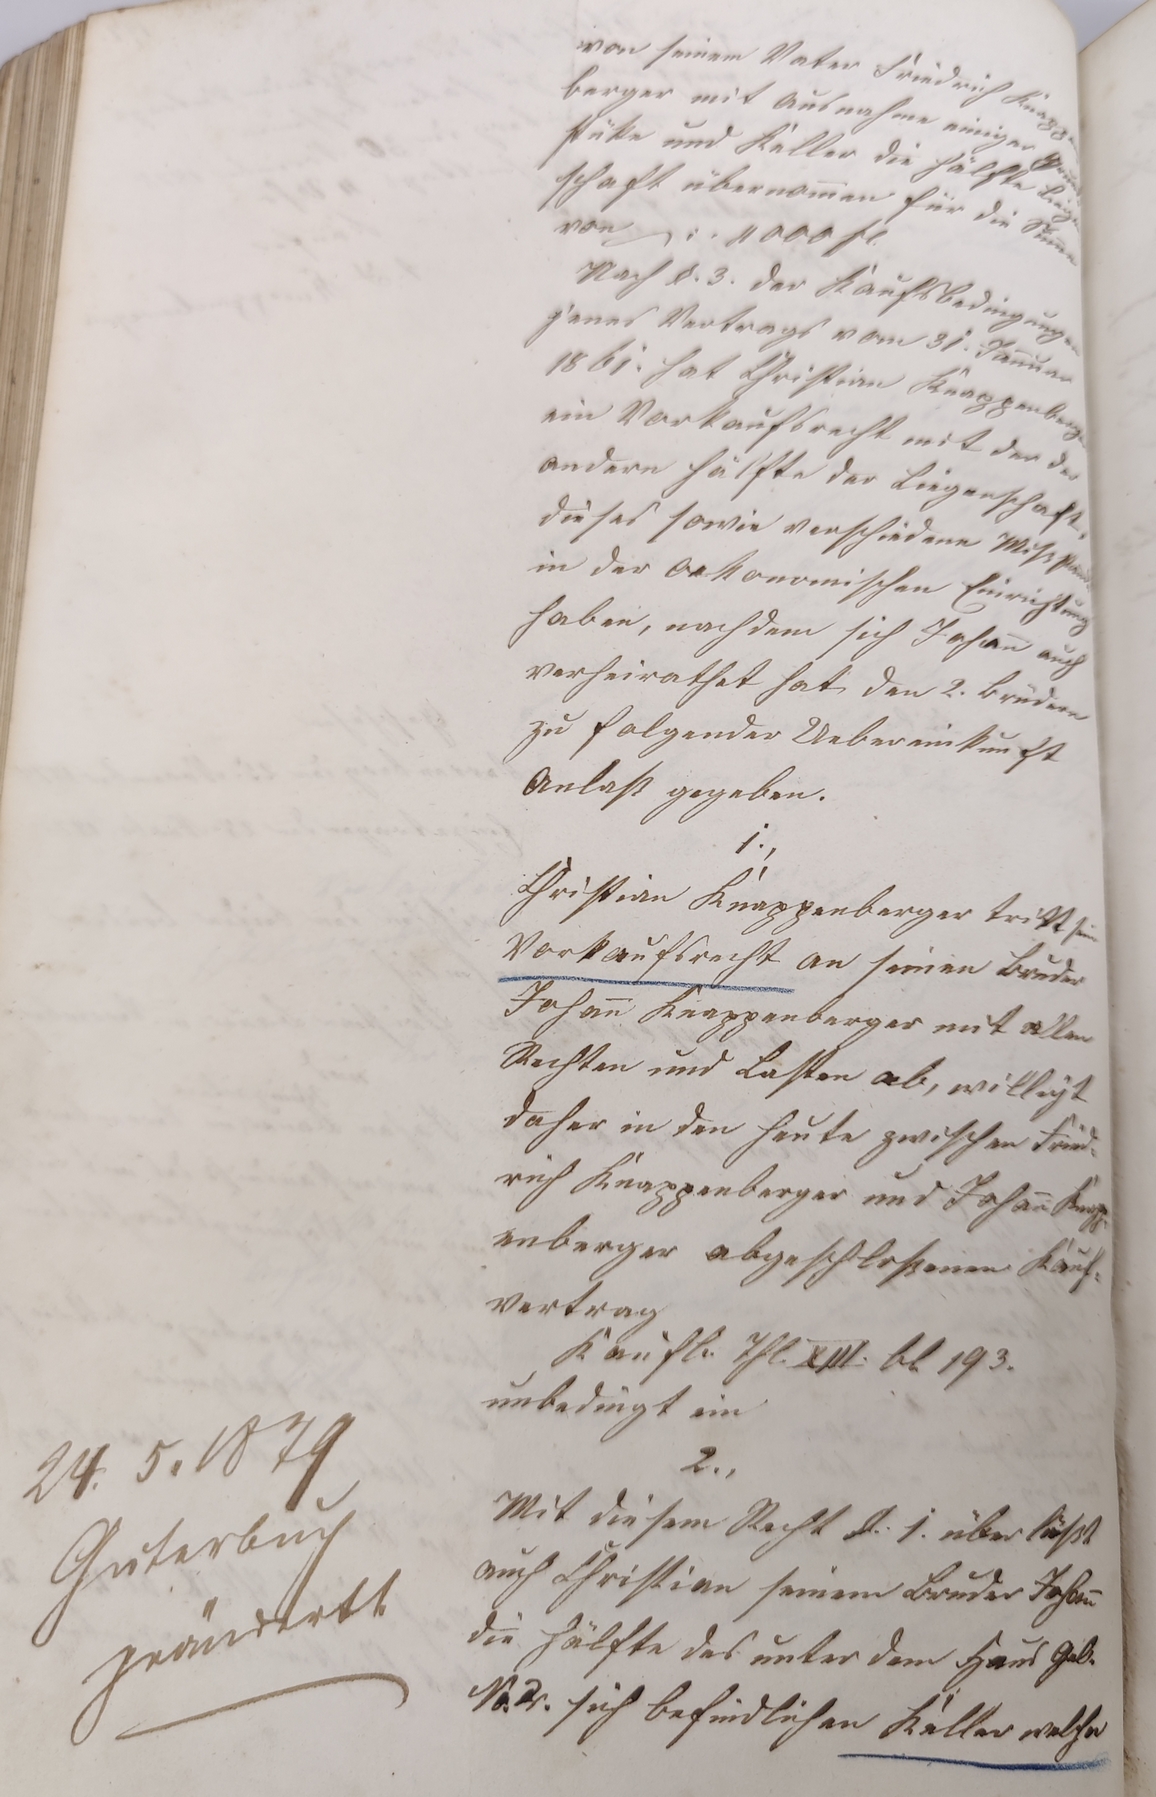 von seinem Vater Friedrich Knappen
berger mit Ausnahme einiger Grund
stüke und Keller die Hälfte Liegen
schaft übernom̅en für die Sum̅e
von 4000 fl
Nach §. 3. der Kaufsbedingungen
jenes Vertrags vom 31. Januar
1861. hat Christian Knappenberger
ein Vorkaufsrecht mit der der
andern Hälfte der Liegenschaft,
dieses sowie verschiedene Mißstände
in der oekonomischen Einrichtung
haben, nachdem sich Johan̅ auch
verheirathet hat den 2. Brüdern
zu folgender Uebereinkunft
Anlaß gegeben.
1.,
Christian Knappenberger tritt sein
Vorkaufsrecht an seinen Bruder
Johan̅ Knappenberger mit allen
Rechten und Lasten ab, willigt
daher in den heute zwischen Fried-
rich Knappenberger und Johan̅ Knapp-
enberger abgeschloßenen Kauf-
vertrag
Kaufb. Thl. XIII. bl. 193.
unbedingt ein
2.,
Mit diesem Recht §. 1. überläßt
auch Christian seinem Bruder Johan̅
die Hälfte des unter dem Haus Geb.
No. 2. sich befindlichen Keller welche
24. 5. 1879
Güterbuch
geändert